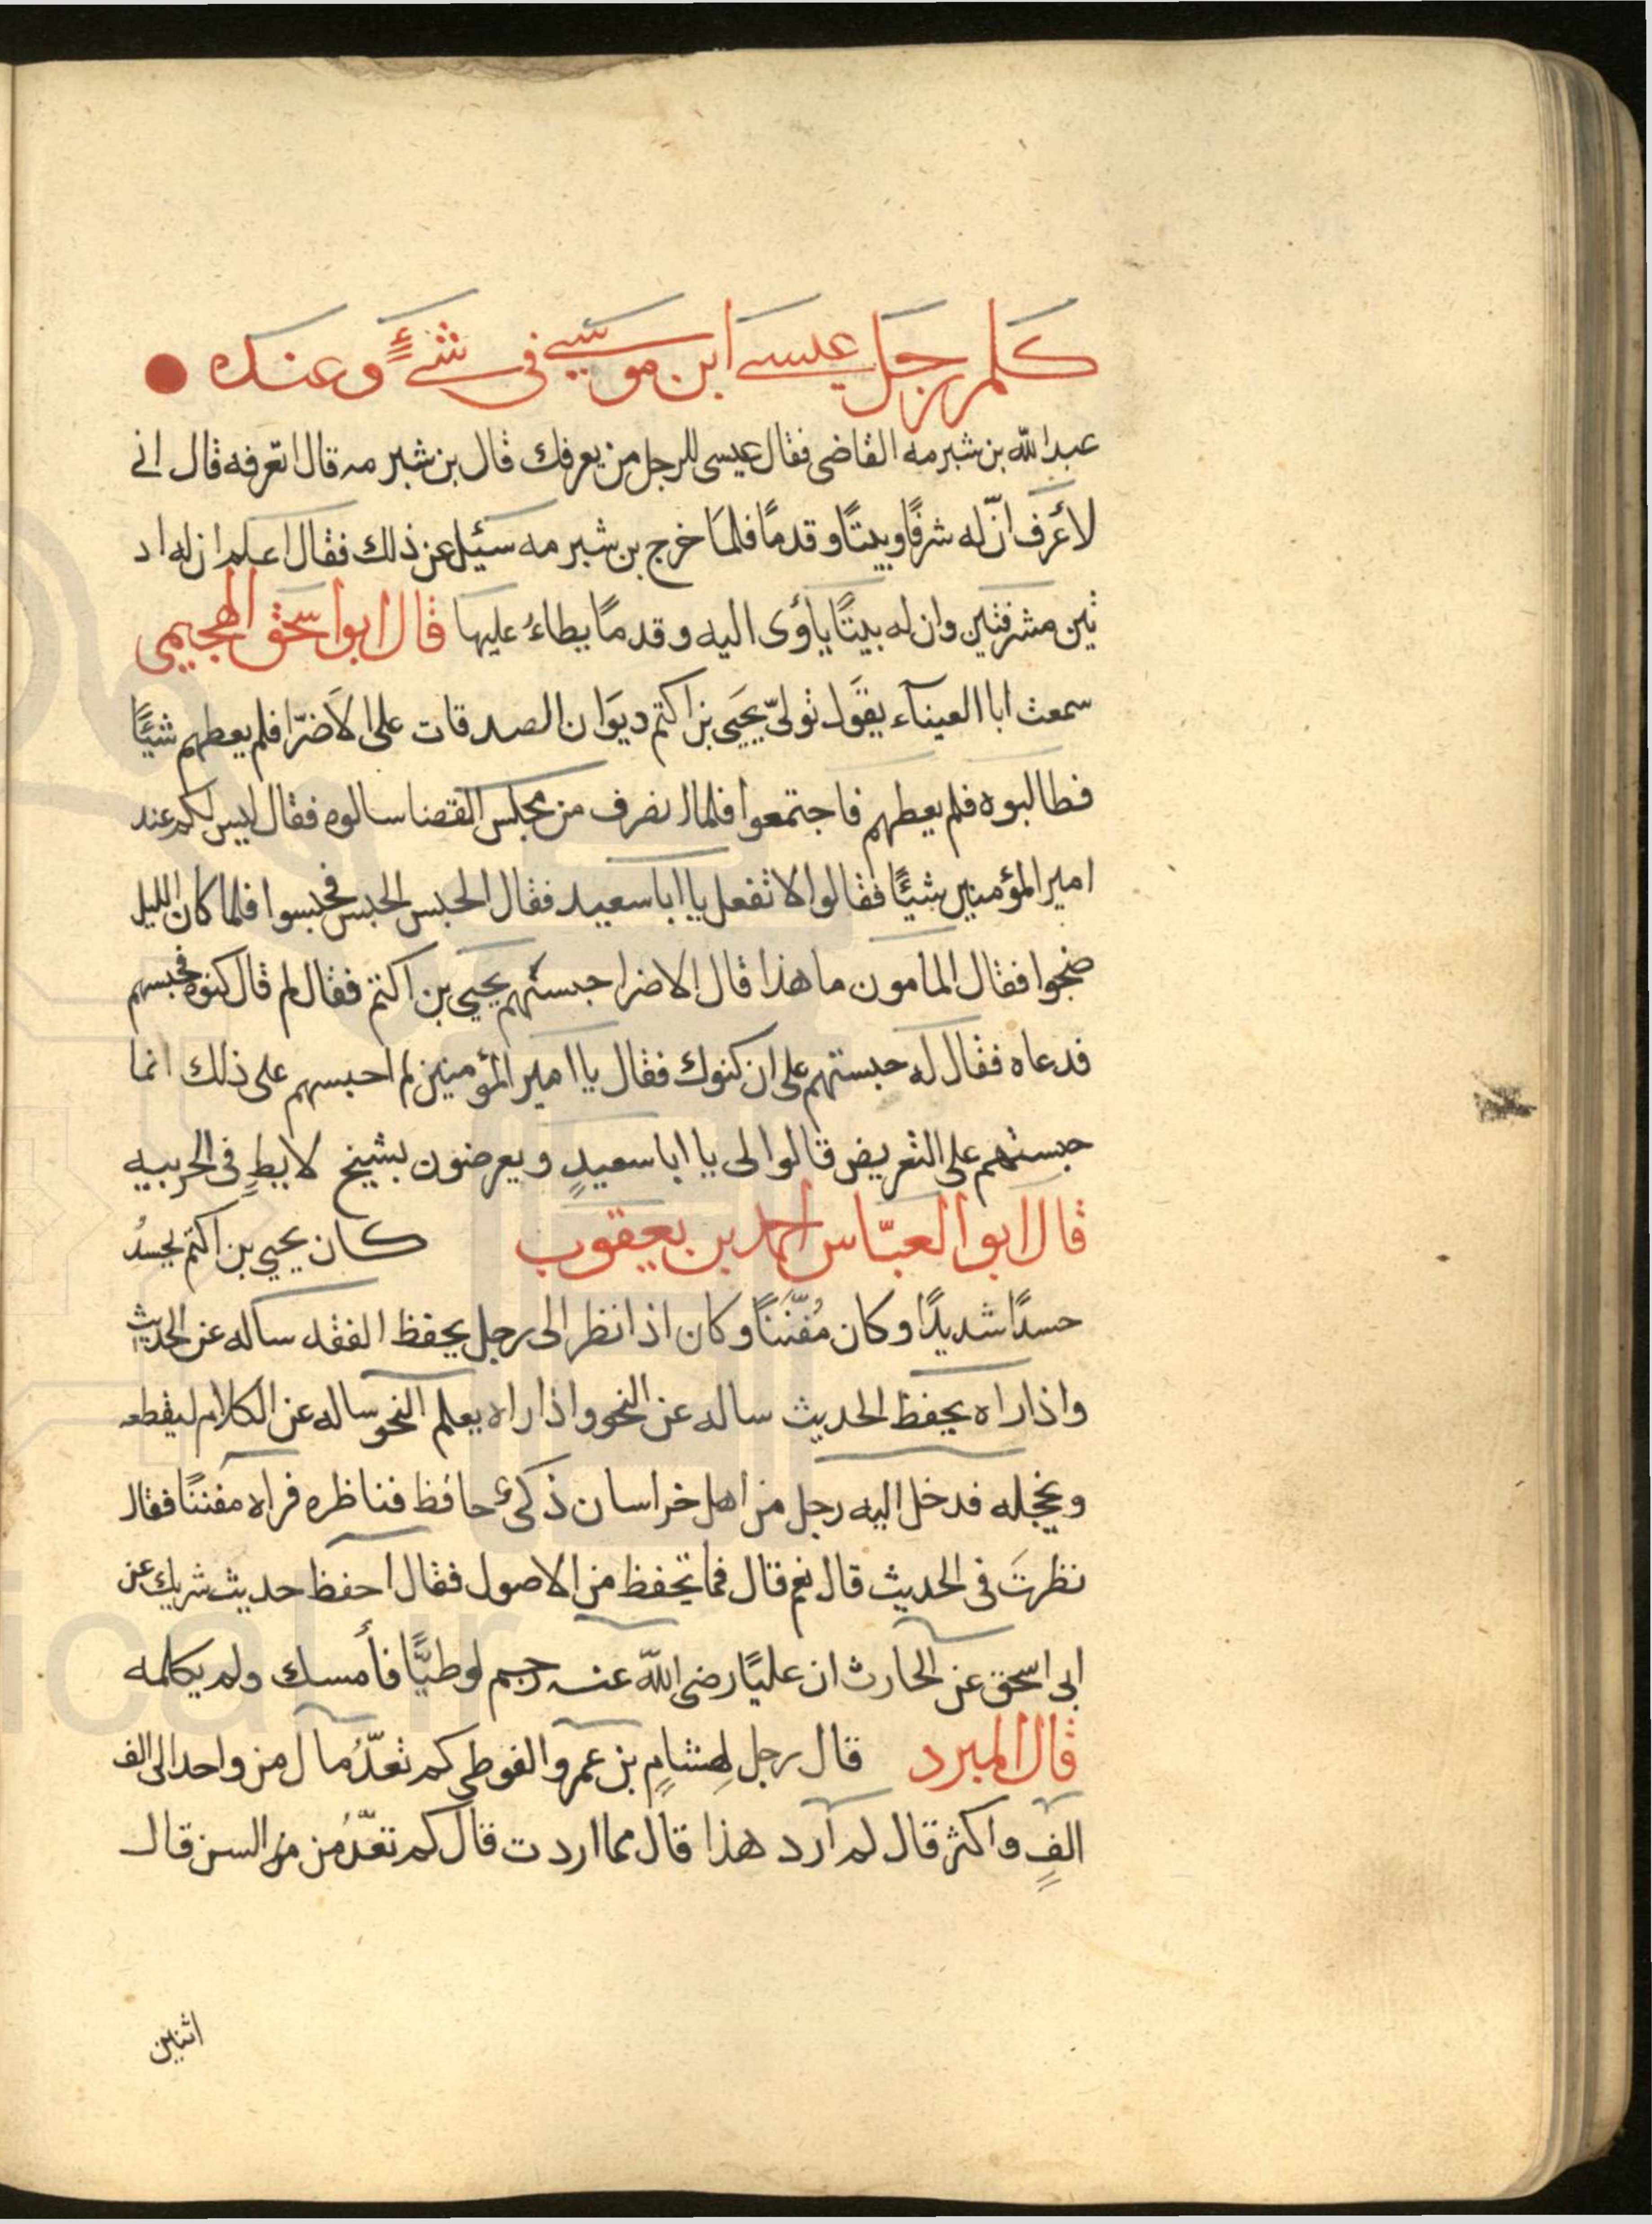 كلم رجل عيسى ابن موسى فى شىءٍ وعنده
عبدالله بن شبرمه القاضى فقال عيسى للرجل من يعرفك قال بن شبرمه قال اتعرفه قال انى
لأعرف انّ له شرفًا وبيتًا وقدمًا فلمّا خرج بن شبرمه سئيل عن ذلك فقال اعلم ان له اد
نين مشرفتين وان له بيتًا يأوى اليه وقدمًا يطاءُ عليها قال ابو اسحق الهجيمى
سمعت ابا العيناء يقول تولىّ يحيى بن اكتم ديوان الصدقات على الاضرّا فلم يعطهم شيئًا
فطالبوه فلم يعطهم فاجتمعوا فلما انصرف من مجلس القضا سالوه فقال ليس لكم عند
امير المؤمنين شيئًا فقالوا لا تفعل يا ابا سعيد فقال الحبس الحبس فحبسوا فلما كان الليل
ضجوا فقال المامون ما هذا قال الاضرا حبستهم يحيى بن اكتم فقال لم قال كنوه فحبسهم
فدعاه فقال له حبستهم على ان كنوك فقال يا امير المؤمنين لم احبسهم على ذلك انما
حبستهم على التعريض قالوا لى يا ابا سعيدٍ ويعرضون بشيخ لايطٍ فى الحربيه
قال ابو العبّاس احمد بن يعقوب كان يحيى بن اكتم يحسدُ
حسدًا شديدًا وكان مُفنّنًا وكان اذا نظر الى رجل يحفظ الفقه ساله عن الحديث
واذا راه يحفظ الحديث ساله عن النحو واذا راه يعلم النحو ساله عن الكلام ليقطعه
ويخجله فدخل اليه رجل من اهل خراسان ذكىّ حافظ فناظره فراه مفننًا فقال
نظرتَ فى الحديث قال نعم قال فما تحفظ من الاصول فقال احفظ حديث شريك عن
ابى اسحق عن الحارث ان عليًا رضى الله عنه رجم لوطيًّا فأمسك ولم يكلمه
قال المبرد قال رجل لهشامٍ بن عمرو الفوطى كم تعدّ مال من واحد الى الف
الفٍ واكثر قال لم ارد هذا قال مما اردت قال كم تعدّ من من السن قال
اثنين